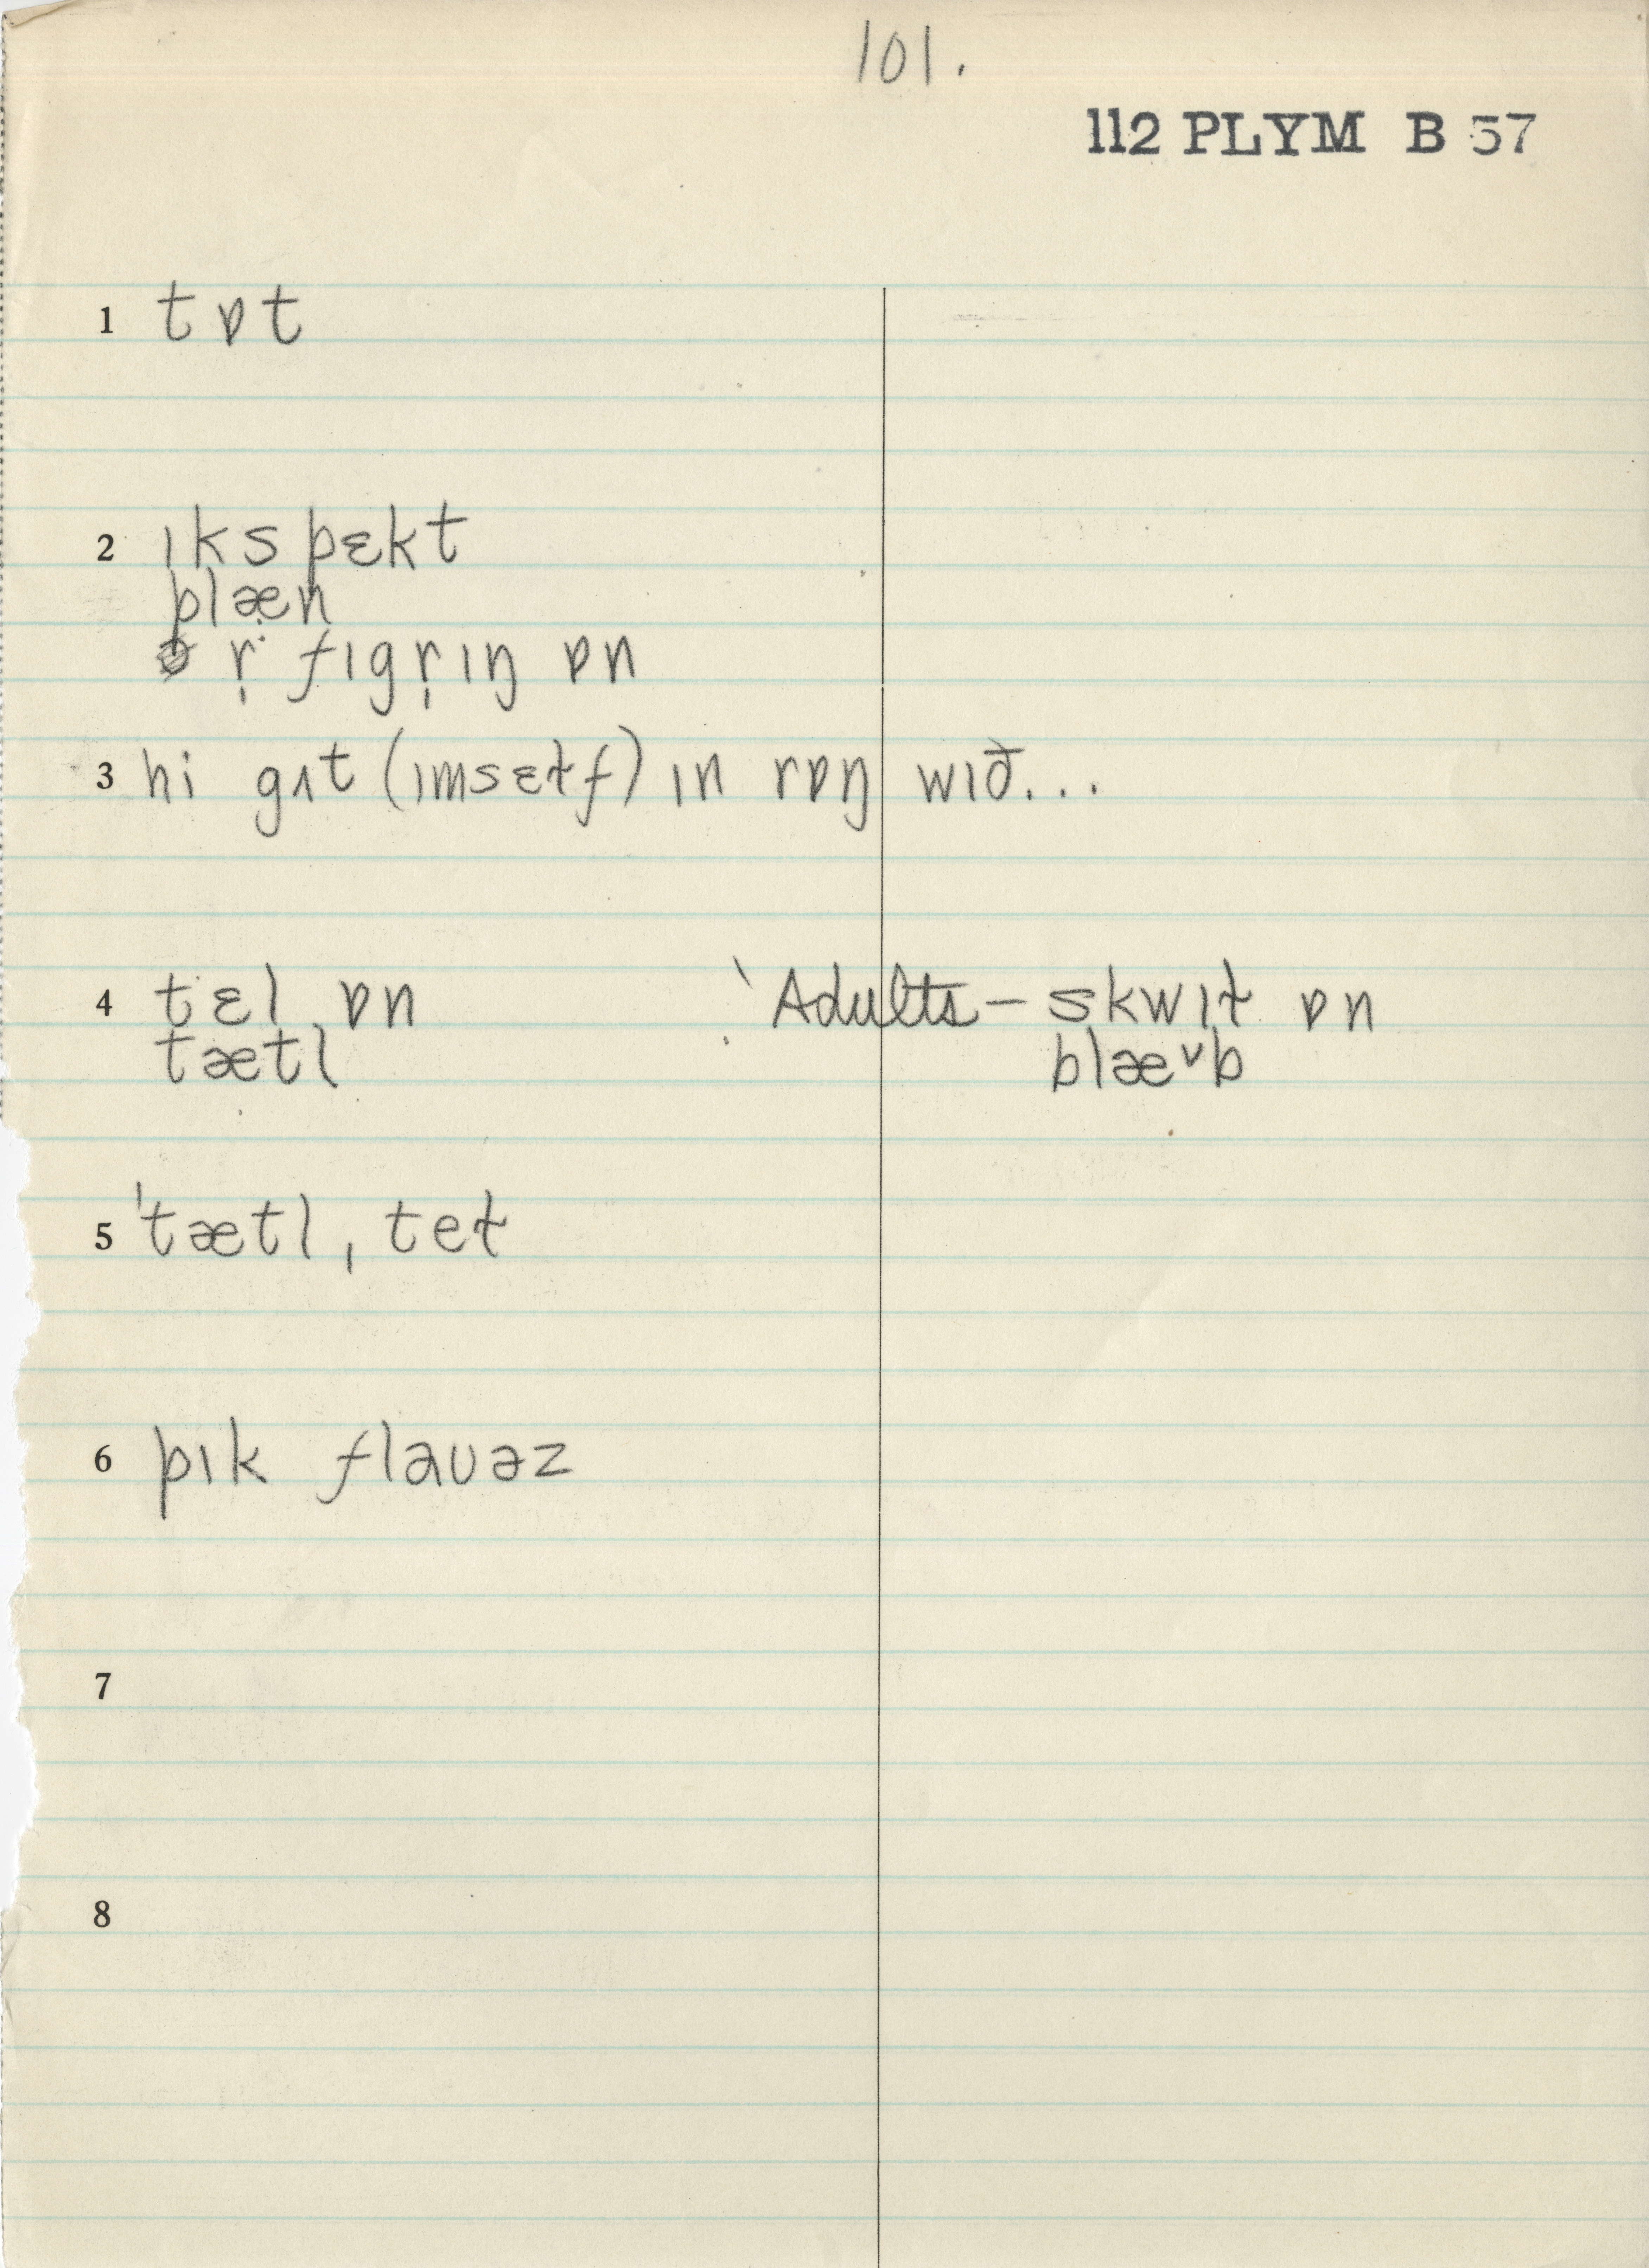 101.
112 PLYM B 57
1 tɒt
2 ɪkspɛkt
plæn
r̩ fɪgr̩ɪŋ ɒn
3 hi gɪt (ɪmsɛɫf) ɪn rɒŋ wɪð...
4 tɛl ɒn ˋAdults – skwɪɫ ɒn
tætl blæᵛb
5 ˈtætl, teɫ
6 pɪk flaʊəz
7
8